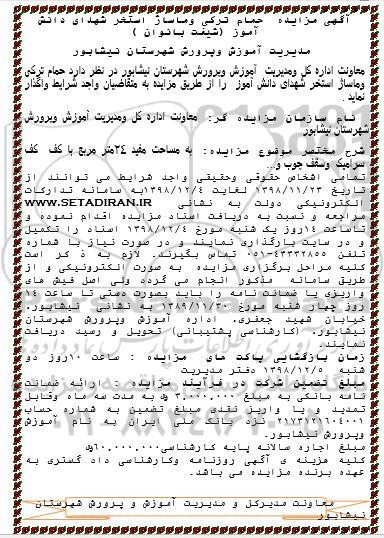 آگهی مزایده حمام ترکی وماساژ استخر شهدای دانش
آموز (شیفت بانوان )
مدیریت آموزش وپرورش شهرستان نیشابور
معاونت اداره کل ومدیریت آموزش وپرورش شهرستان نیشابور در نظر دارد حمام ترکی
وماساژ استخر شهدای دانش آموز را از طریق مزایده به متقاضیان واجد شرایط واگذار
نماید .
نام سازمان مزایده گر: معاونت اداره کل ومدیریت آموزش وپرورش
شهرستان نیشابور
شرح مختصر موضوع مزایده: به مساحت مفید ٢٤متر مربع با کف کف
سرامیک وسقف چوب و...
تمامی اشخاص حقوقی وحقیقی واجد شرایط می توانند از
تاریخ ١٣٩٨/١١/٢٣ لغایت ١٣٩٨/١٢/٤به سامانه تدارکات
الکترونیکی دولت به نشانی WWW.SETADIRAN.IR
مراجعه و نسبت به دریافت اسناد مزایده اقدام نموده و
تاساعت ١٤روز یک شنبه مورخ ١٣٩٨/١٢/٤ اسناد را تکمیل
و در سایت بارگذاری نمایند و در صورت نیاز با شماره
تلفن ٤٣٣٣٢٨٥٥-٠٥١ تماس بگیرند. لازم به ذکر است
کلیه مراحل برگزاری مزایده به صورت الکترونیکی و از
طریق سامانه مذکور انجام می گردد ولی اصل فیش های
واریزی یا ضمانت نامه را باید بصورت دستی تا ساعت ١٤
روز چهار شنبه مورخ ١٣٨٩/١١/٣٠ به نشانی نیشابور.
خیابان شهید جعفری. اداره آموزش وپرورش شهرستان
نیشابور. (کارشناسی پشتیبانی) تحویل و رسید دریافت
نمایند
زمان بازگشایی پاکت های مزایده : ساعت ١٠روز دو
شنبه ١٣٩٨/١٢/٥ دفتر مدیریت
مبلغ تضمین شرکت در فرآیند مزایده : ارائه ضمانت
نامه بانکی به مبلغ ٣,٠٠٠,٠٠٠ به مدت سه ماه وقابل
تمدید و یا واریز نقدی مبلغ تضمین به شماره حساب
نزد بانک ملی ایران به نام آموزش
وپرورش نیشابور.
مبلغ اجاره سالانه پایه کارشناسی٦٠,٠٠٠,٠٠٠
کلیه هزینه ی آگهی روزنامه وکارشناسی داد گستری به
عهده برنده مزایده می باشد.
معاونت مدیرکل و مدیریت آموزش و پرورش شهرستان
نیشابور